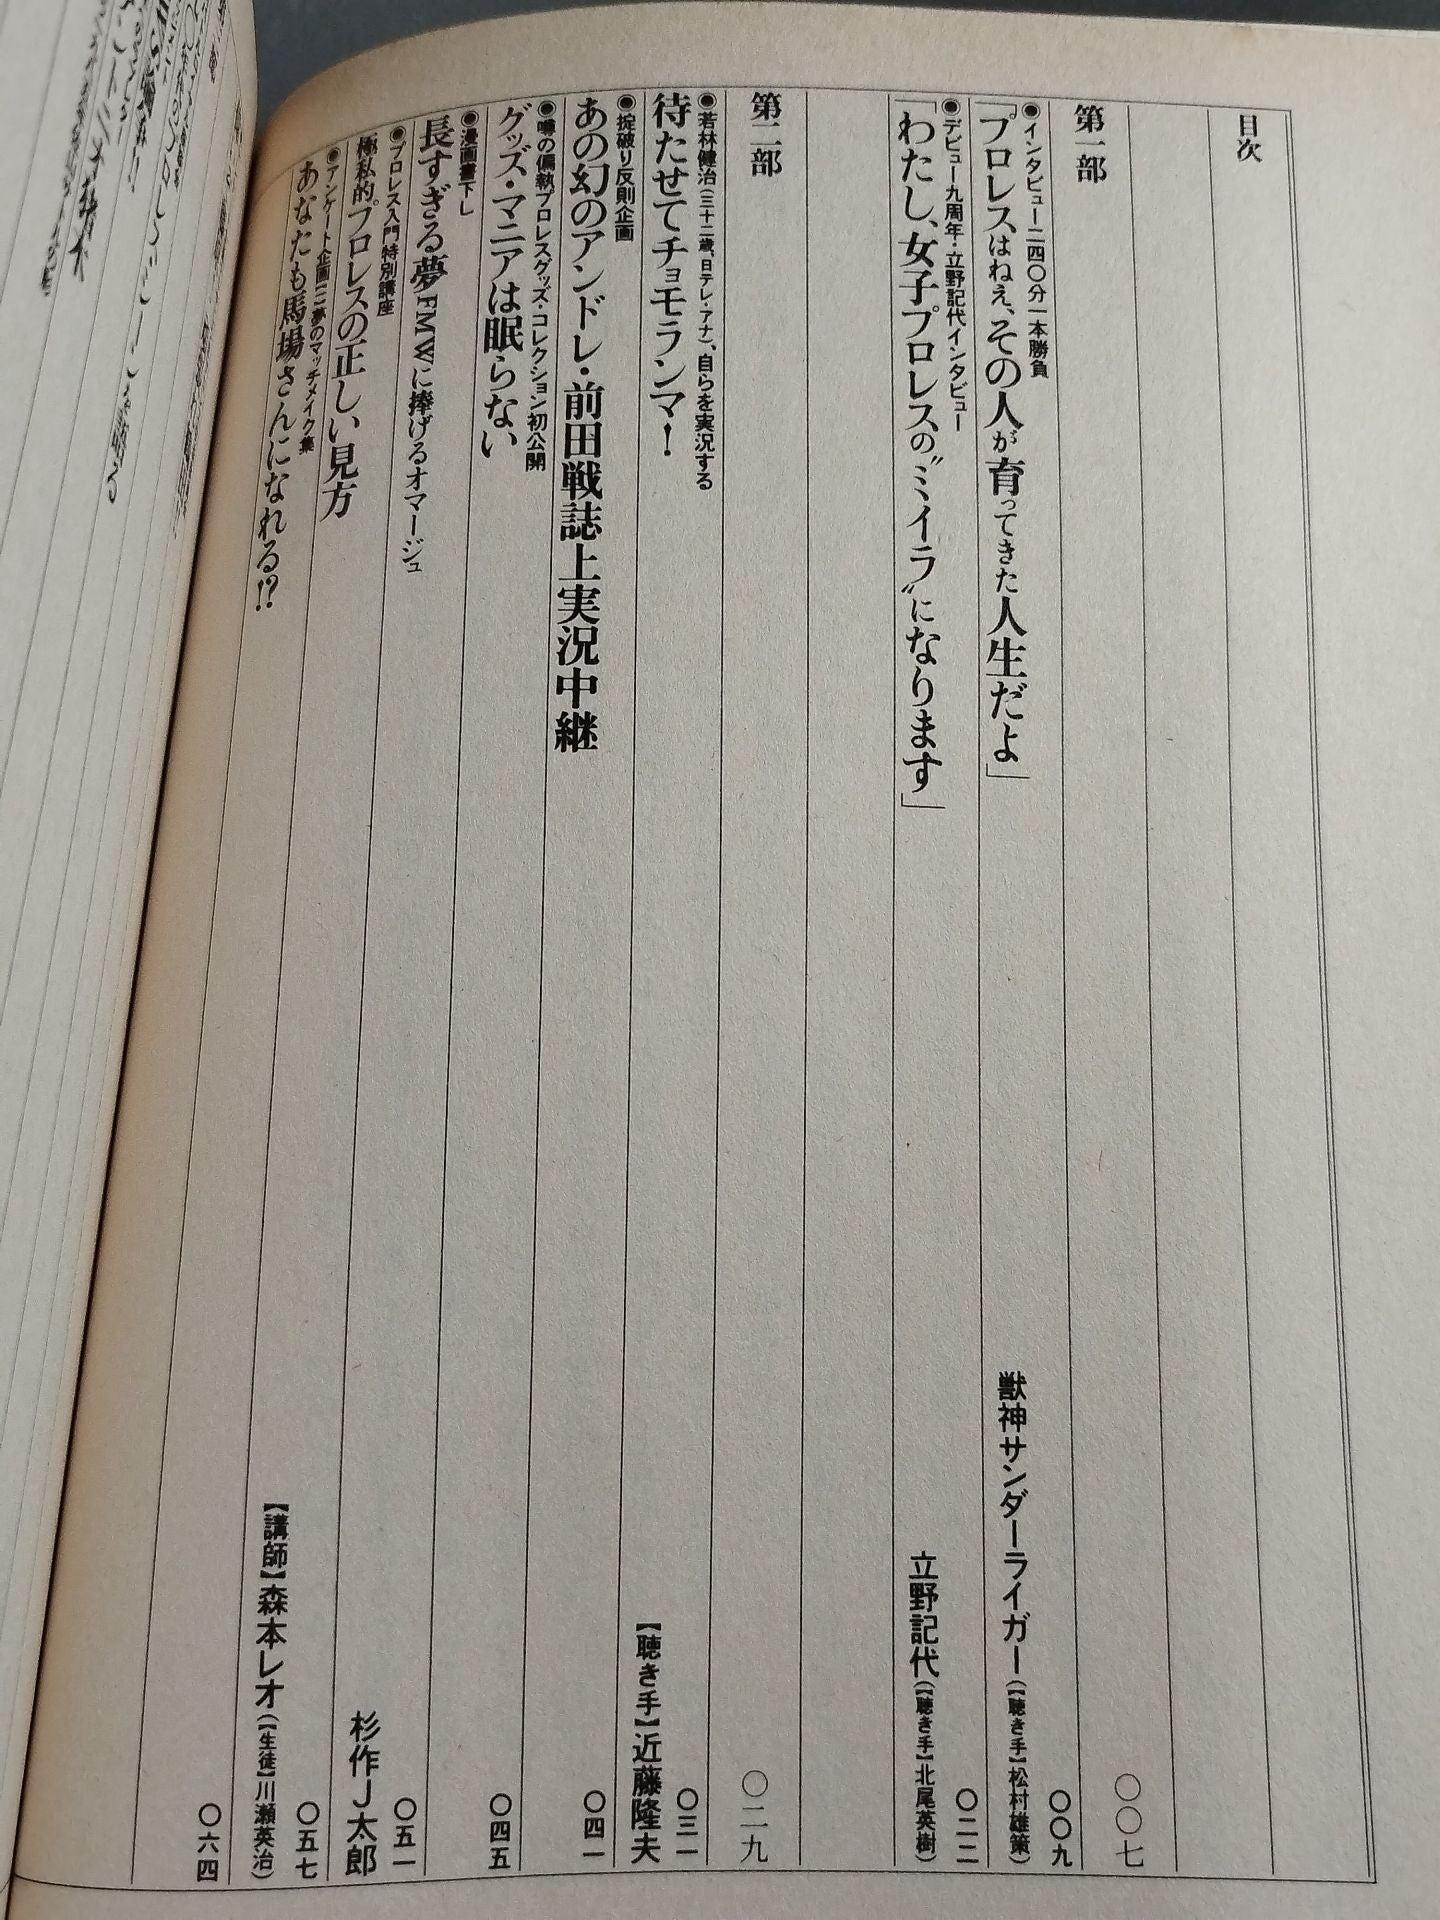 目次
第一部
〇〇七
◉インタビュー二四〇分一本勝負
〇〇九
「プロレスはねえ、その人が育ってきた人生だよ」
獣神サンダーライガー(【聴き手】松村雄策)
◉デビュー九周年・立野記代インタビュー
〇二二
「わたし、女子プロレスの〝ミイラ〟になります」
立野記代(【聴き手】北尾英樹)
第二部
〇二九
◉若林健治(三十二歳、日テレ・アナ)、自らを実況する
〇三一
待たせてチョモランマ!
【聴き手】近藤隆夫
◉掟破り反則企画
〇四一
あの幻のアンドレ・前田戦誌上実況中継
◉噂の偏執プロレスグッズ・コレクション初公開
〇四五
グッズ・マニアは眠らない
◉漫画書下し
〇五一
長すぎる夢FMWに捧げるオマージュ
杉作J太郎
◉プロレス入門特別講座
〇五七
極私的プロレスの正しい見方
【講師】森本レオ(【生徒】川瀬英治)
◉アンケート企画
夢のマッチメイク集
〇六四
あなたも馬場さんになれる!?